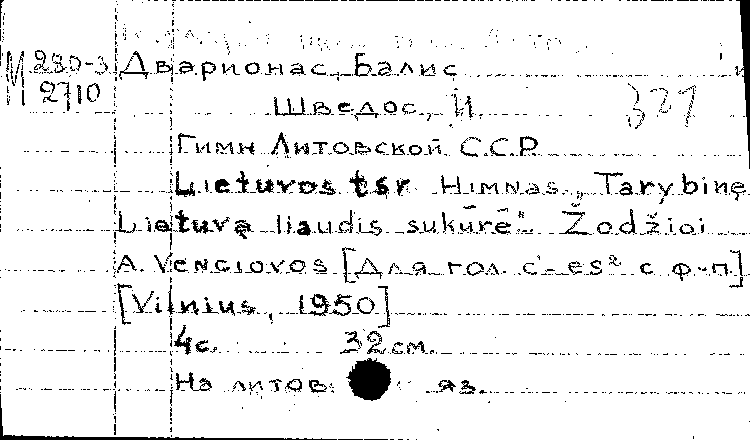 М 280-3 Дварионас, Балис
2710 Шведос, И. 321
Гимн Литовской С.С.Р.
Lietuvos tsr Himnas. „Tarybinę
Lietuvą liaudis sukūrė“. Žodžiai
A. Venclovos [Для гол. c¹-es² с ф-п.]
[Vilnius, 1950]
4 с. 32 см.
На литов. яз.